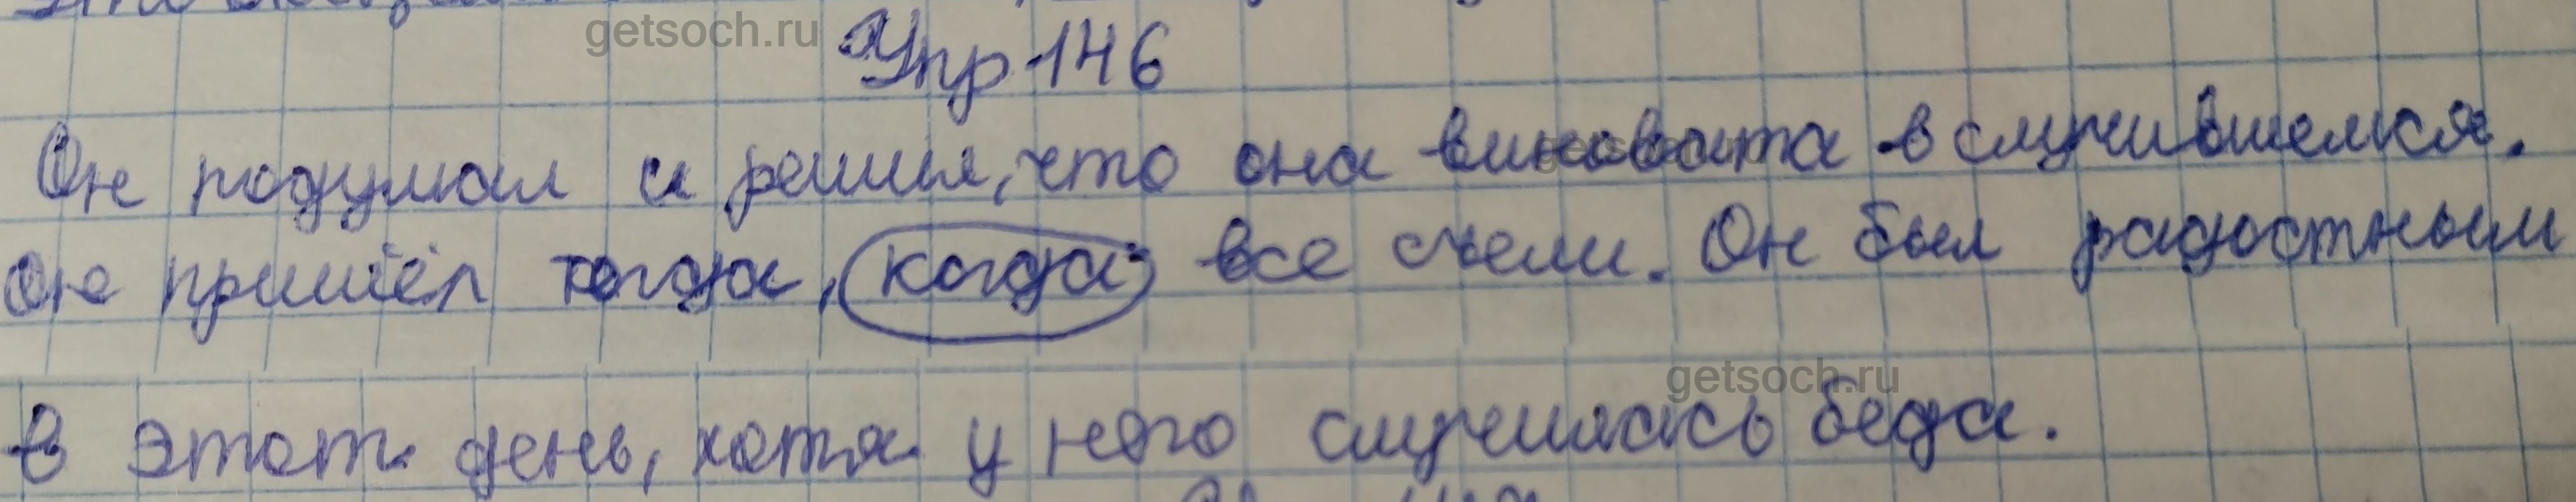 getsoch.ru
Упр 146
Он подумал и решил, что она виновата в случившемся.
Он пришёл тогда, когда все съели. Он был радостным
getsoch.ru
в этот день, хотя у него случилась беда.